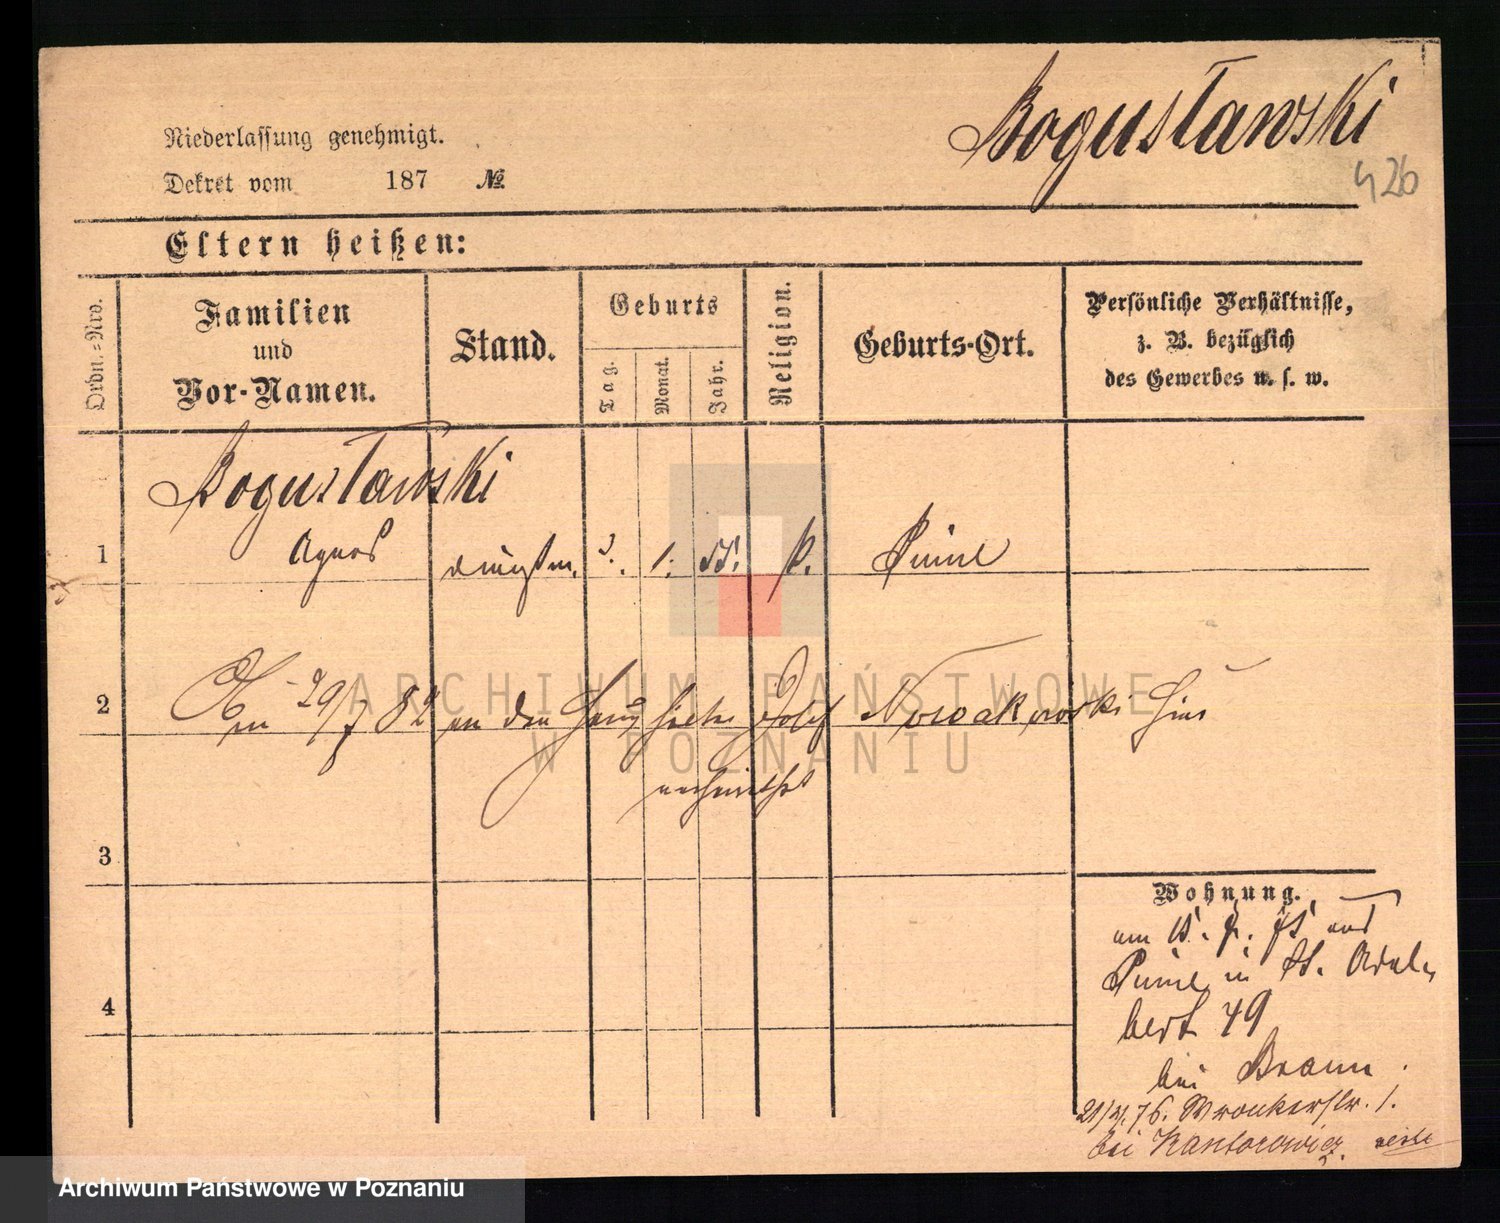 Bogusławski
426
Niederlassung genehmigt.
Dekret vom 187 №
Eltern heißen:
Ordn.=Nro.
Familien
und
Vor-Namen.
Stand.
Geburts
Tag.
Monat.
Jahr.
Religion.
Geburts-Ort.
Persönliche Verhältnisse,
z. B. bezüglich
des Gewerbes u. s. w.
Bogusławski
1 Agnes 3. 1. 55. k. Pinne
2 Am 29/7 82 an den Josef Nowakowski hier
verheirathet
3
4
Wohnung.
am 15. 75 aus
Pinne in St. Adal-
bert 49
bei Braun.
76. Wronkerstr. 1.
bei Kantorowicz
ARCHIWUM PAŃSTWOWE
W POZNANIU
Archiwum Państwowe w Poznaniu